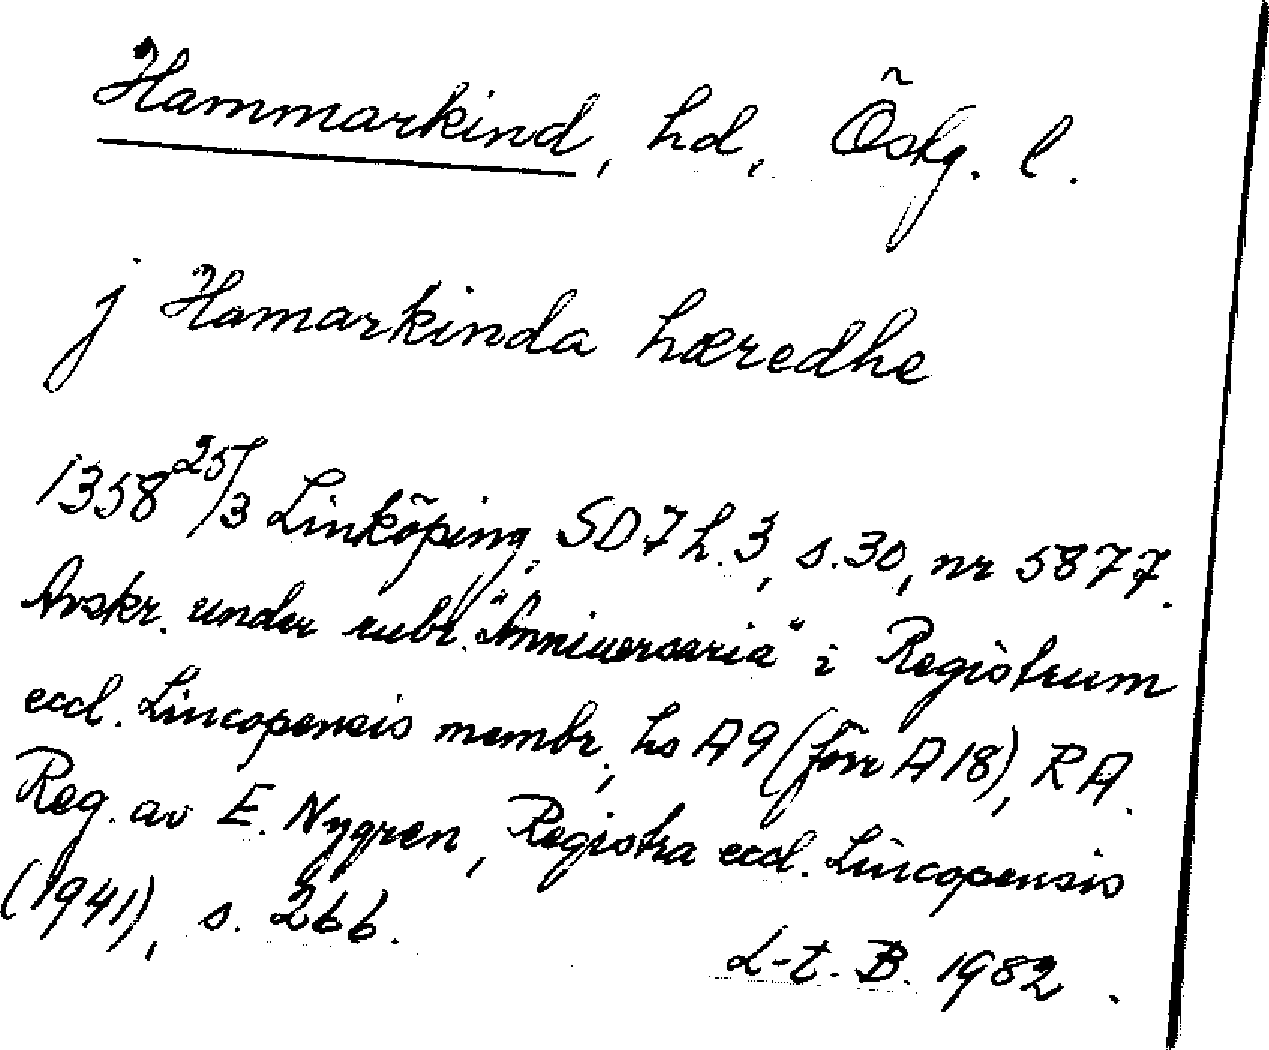 Hammarkind, hd, Östg. l.
j Hamarkinda hæredhe
1358 25/3 Linköping, SD 7 h. 3, s. 30, nr 5877.
Avskr. under rubr. "Anniversaria" i Registrum
eccl. Lincopensis membr., hs A 9 (förr A 18), RA.
Reg. av E. Nygren, Registra eccl. Lincopensis
(1941), s. 266.
L-t. B. 1982.